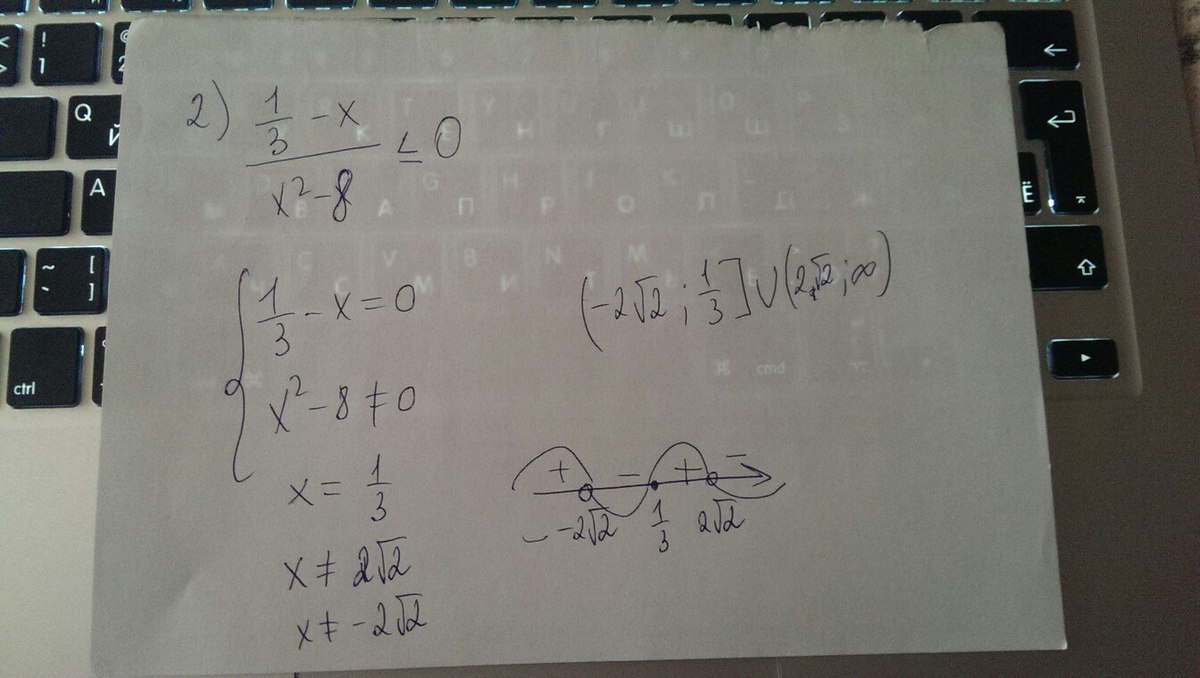 2) (1/3 - x)/(x² - 8) ≤ 0
{ 1/3 - x = 0
x² - 8 ≠ 0
x = 1/3
x ≠ 2√2
x ≠ -2√2
(-2√2 ; 1/3] ∪ (2√2 ; ∞)
+ - + -
-2√2 1/3 2√2
!
1
Q
Й
A
~ [
` ]
ctrl
Ё
cmd